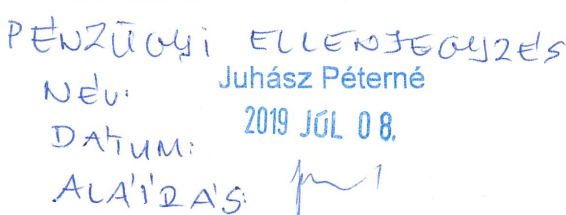 PÉNZÜGYI ELLENJEGYZÉS
NÉV: Juhász Péterné
DATUM: 2019 JÚL 08.
ALÁÍRÁS: